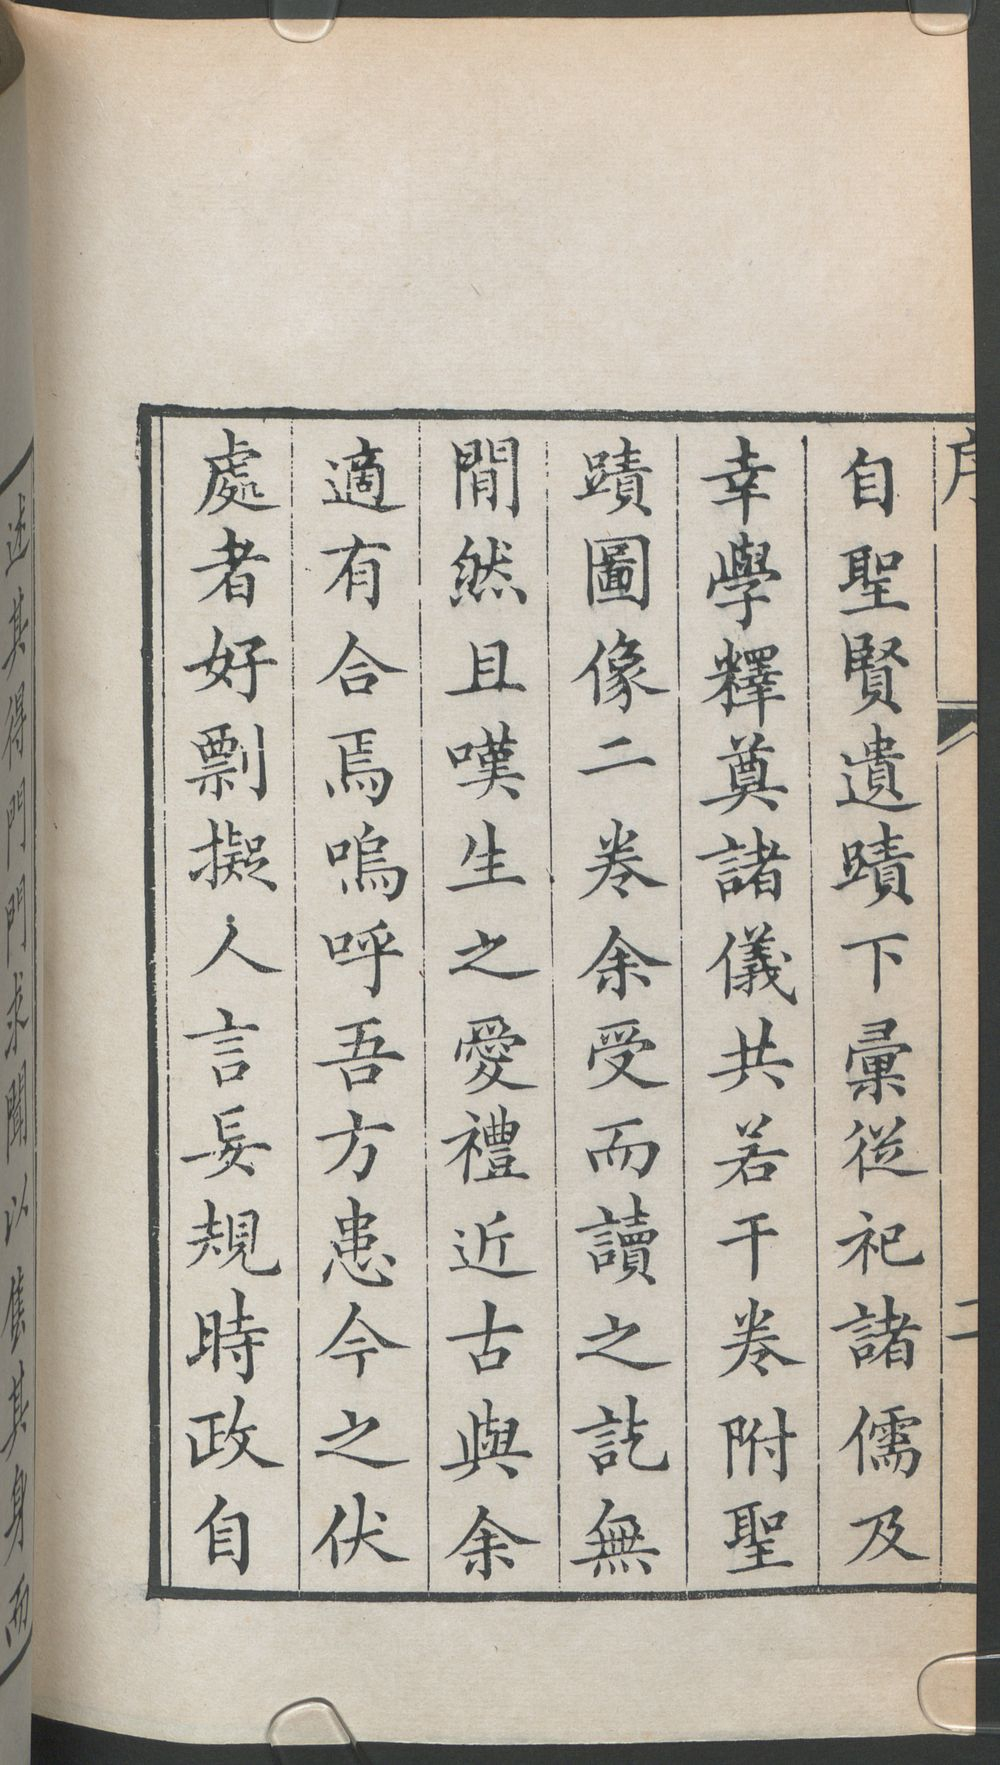 序
二
自聖賢遺蹟下彙從祀諸儒及
幸學釋奠諸儀共若干卷附聖
蹟圖像二卷余受而讀之訖無
閒然且嘆生之愛禮近古與余
適有合焉嗚呼吾方患今之伏
處者好剽擬人言妄規時政自
述其得門門門求聞以售其身而